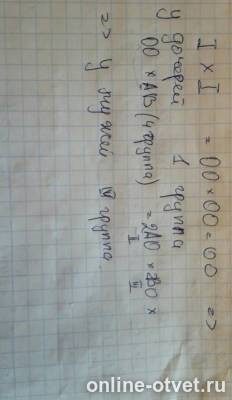 I × I = 00 × 00 = 00 =>
у дочерей 1 группа
00 × AB (4 группа) = 2A0 × 2B0 ×
II III
=> У мужей IV группа
online-otvet.ru